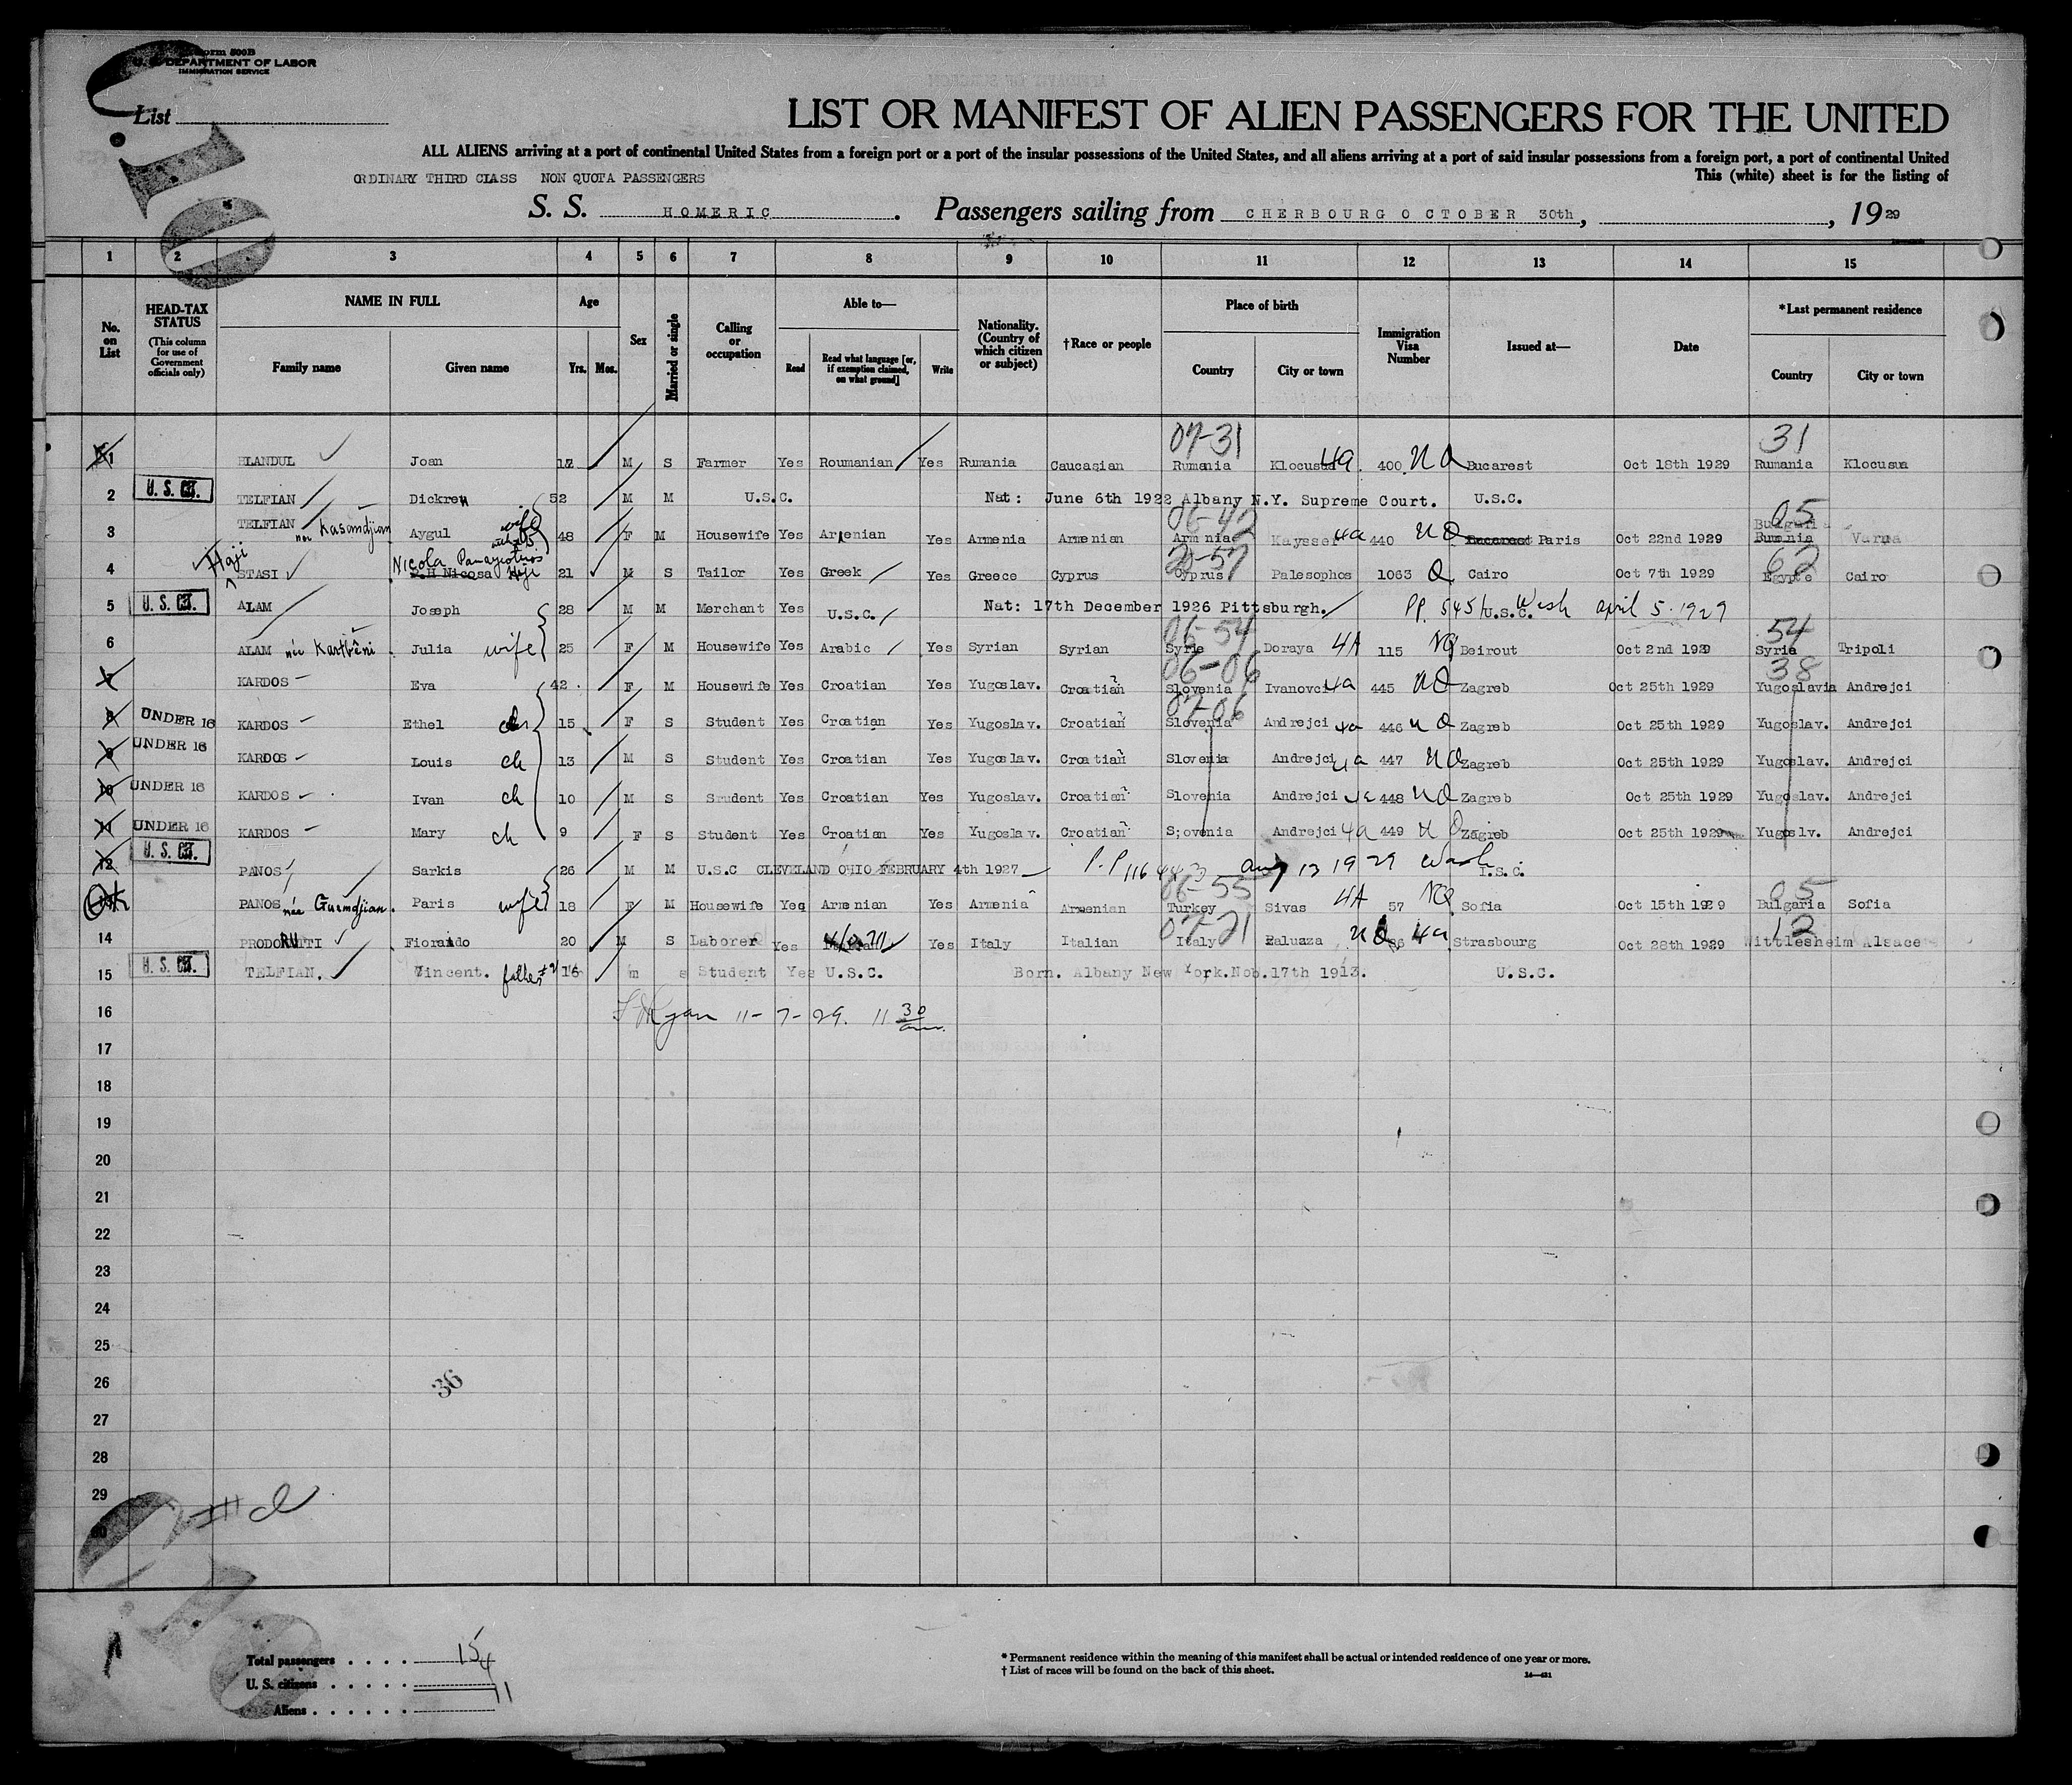 Form 500B
U. S. DEPARTMENT OF LABOR
IMMIGRATION SERVICE
List
10
LIST OR MANIFEST OF ALIEN PASSENGERS FOR THE UNITED
ALL ALIENS arriving at a port of continental United States from a foreign port or a port of the insular possessions of the United States, and all aliens arriving at a port of said insular possessions from a foreign port, a port of continental United
ORDINARY THIRD CLASS NON QUOTA PASSENGERS
This (white) sheet is for the listing of
S. S. HOMERIC. Passengers sailing from CHERBOURG OCTOBER 30th, , 1929
1 2 3 4 5 6 7 8 9 10 11 12 13 14 15
No. on List
HEAD-TAX STATUS (This column for use of Government officials only)
NAME IN FULL Family name Given name
Age Yrs. Mos.
Sex
Married or single
Calling or occupation
Able to— Read Read what language [or, if exemption claimed, on what ground] Write
Nationality. (Country of which citizen or subject)
†Race or people
Place of birth Country City or town
Immigration Visa Number
Issued at—
Date
*Last permanent residence Country City or town
07-31 31
1 BLANDUL Joan 17 M S Farmer Yes Roumanian Yes Rumania Caucasian Rumania Klocusua 4a 400 NQ Bucarest Oct 18th 1929 Rumania Klocusua
2 U. S. Cit. TELFIAN Dickren 52 M M U.S.C. Nat: June 6th 1922 Albany N.Y. Supreme Court. U.S.C.
06-42 05
3 TELFIAN nee Kasandjian Aygul wife 48 F M Housewife Yes Armenian Yes Armenia Armenian Armenia Kaysser 4a 440 NQ Bucarest Paris Oct 22nd 1929 Bulgaria Rumania Varna
20-57 62
4 Haji STASI Nicola Panayiotis P.H Nicosa Haji 21 M S Tailor Yes Greek Yes Greece Cyprus Cyprus Palesophos 1063 Q Cairo Oct 7th 1929 Egypte Cairo
5 U. S. Cit. ALAM Joseph 28 M M Merchant Yes U.S.C. Nat: 17th December 1926 Pittsburgh. PP. 5451 U.S.C. Wash april 5 - 1929
06-54 54
6 ALAM née Julia wife 25 F M Housewife Yes Arabic Yes Syrian Syrian Syria Doraya 4A 115 NQ Beirout Oct 2nd 1929 Syria Tripoli
06-06 38
7 KARDOS Eva 42 F M Housewife Yes Croatian Yes Yugoslav. Croatian Slovenia Ivanovci 4a 445 NQ Zagreb Oct 25th 1929 Yugoslavia Andrejci
07-06
8 UNDER 16 KARDOS Ethel ch 15 F S Student Yes Croatian Yes Yugoslav. Croatian Slovenia Andrejci 4a 446 NQ Zagreb Oct 25th 1929 Yugoslav. Andrejci
9 UNDER 16 KARDOS Louis ch 13 M S Student Yes Croatian Yes Yugoslav. Croatian Slovenia Andrejci 4a 447 NQ Zagreb Oct 25th 1929 Yugoslav. Andrejci
10 UNDER 16 KARDOS Ivan ch 10 M S Srudent Yes Croatian Yes Yugoslav. Croatian Slovenia Andrejci 4a 448 NQ Zagreb Oct 25th 1929 Yugoslav. Andrejci
11 UNDER 16 KARDOS Mary ch 9 F S Student Yes Croatian Yes Yugoslav. Croatian S;ovenia Andrejci 4a 449 NQ Zagreb Oct 25th 1929 Yugoslv. Andrejci
12 U. S. Cit. PANOS Sarkis 26 M M U.S.C CLEVELAND OHIO FEBRUARY 4th 1927 P.P Aug 13 1929 Wash
06-55 05
PANOS née Guemdjian. Paris wife 18 F M Housewife Yes Armenian Yes Armenia Armenian Turkey Sivas 4A 57 NQ Sofia Oct 15th 1929 Bulgaria Sofia
07-21 12
14 PRODORUTTI Fiorando 20 M S Laborer Yes Italian Yes Italy Italian Italy Paluzza NQ 4a Strasbourg Oct 28th 1929 Wittlesheim Alsace
15 U. S. Cit. TELFIAN. Vincent. father #2 16 m s Student Yes U.S.C. Born. Albany New York.Nob.17th 1913. U.S.C.
16 Ryan 11-7-29. 11 30 am.
17
18
19
20
21
22
23
24
25
26
36
27
28
29
30
10
Total passengers . . . . 15
U. S. citizens . . . . . 4
Aliens . . . . . . 11
* Permanent residence within the meaning of this manifest shall be actual or intended residence of one year or more.
† List of races will be found on the back of this sheet.
14—431